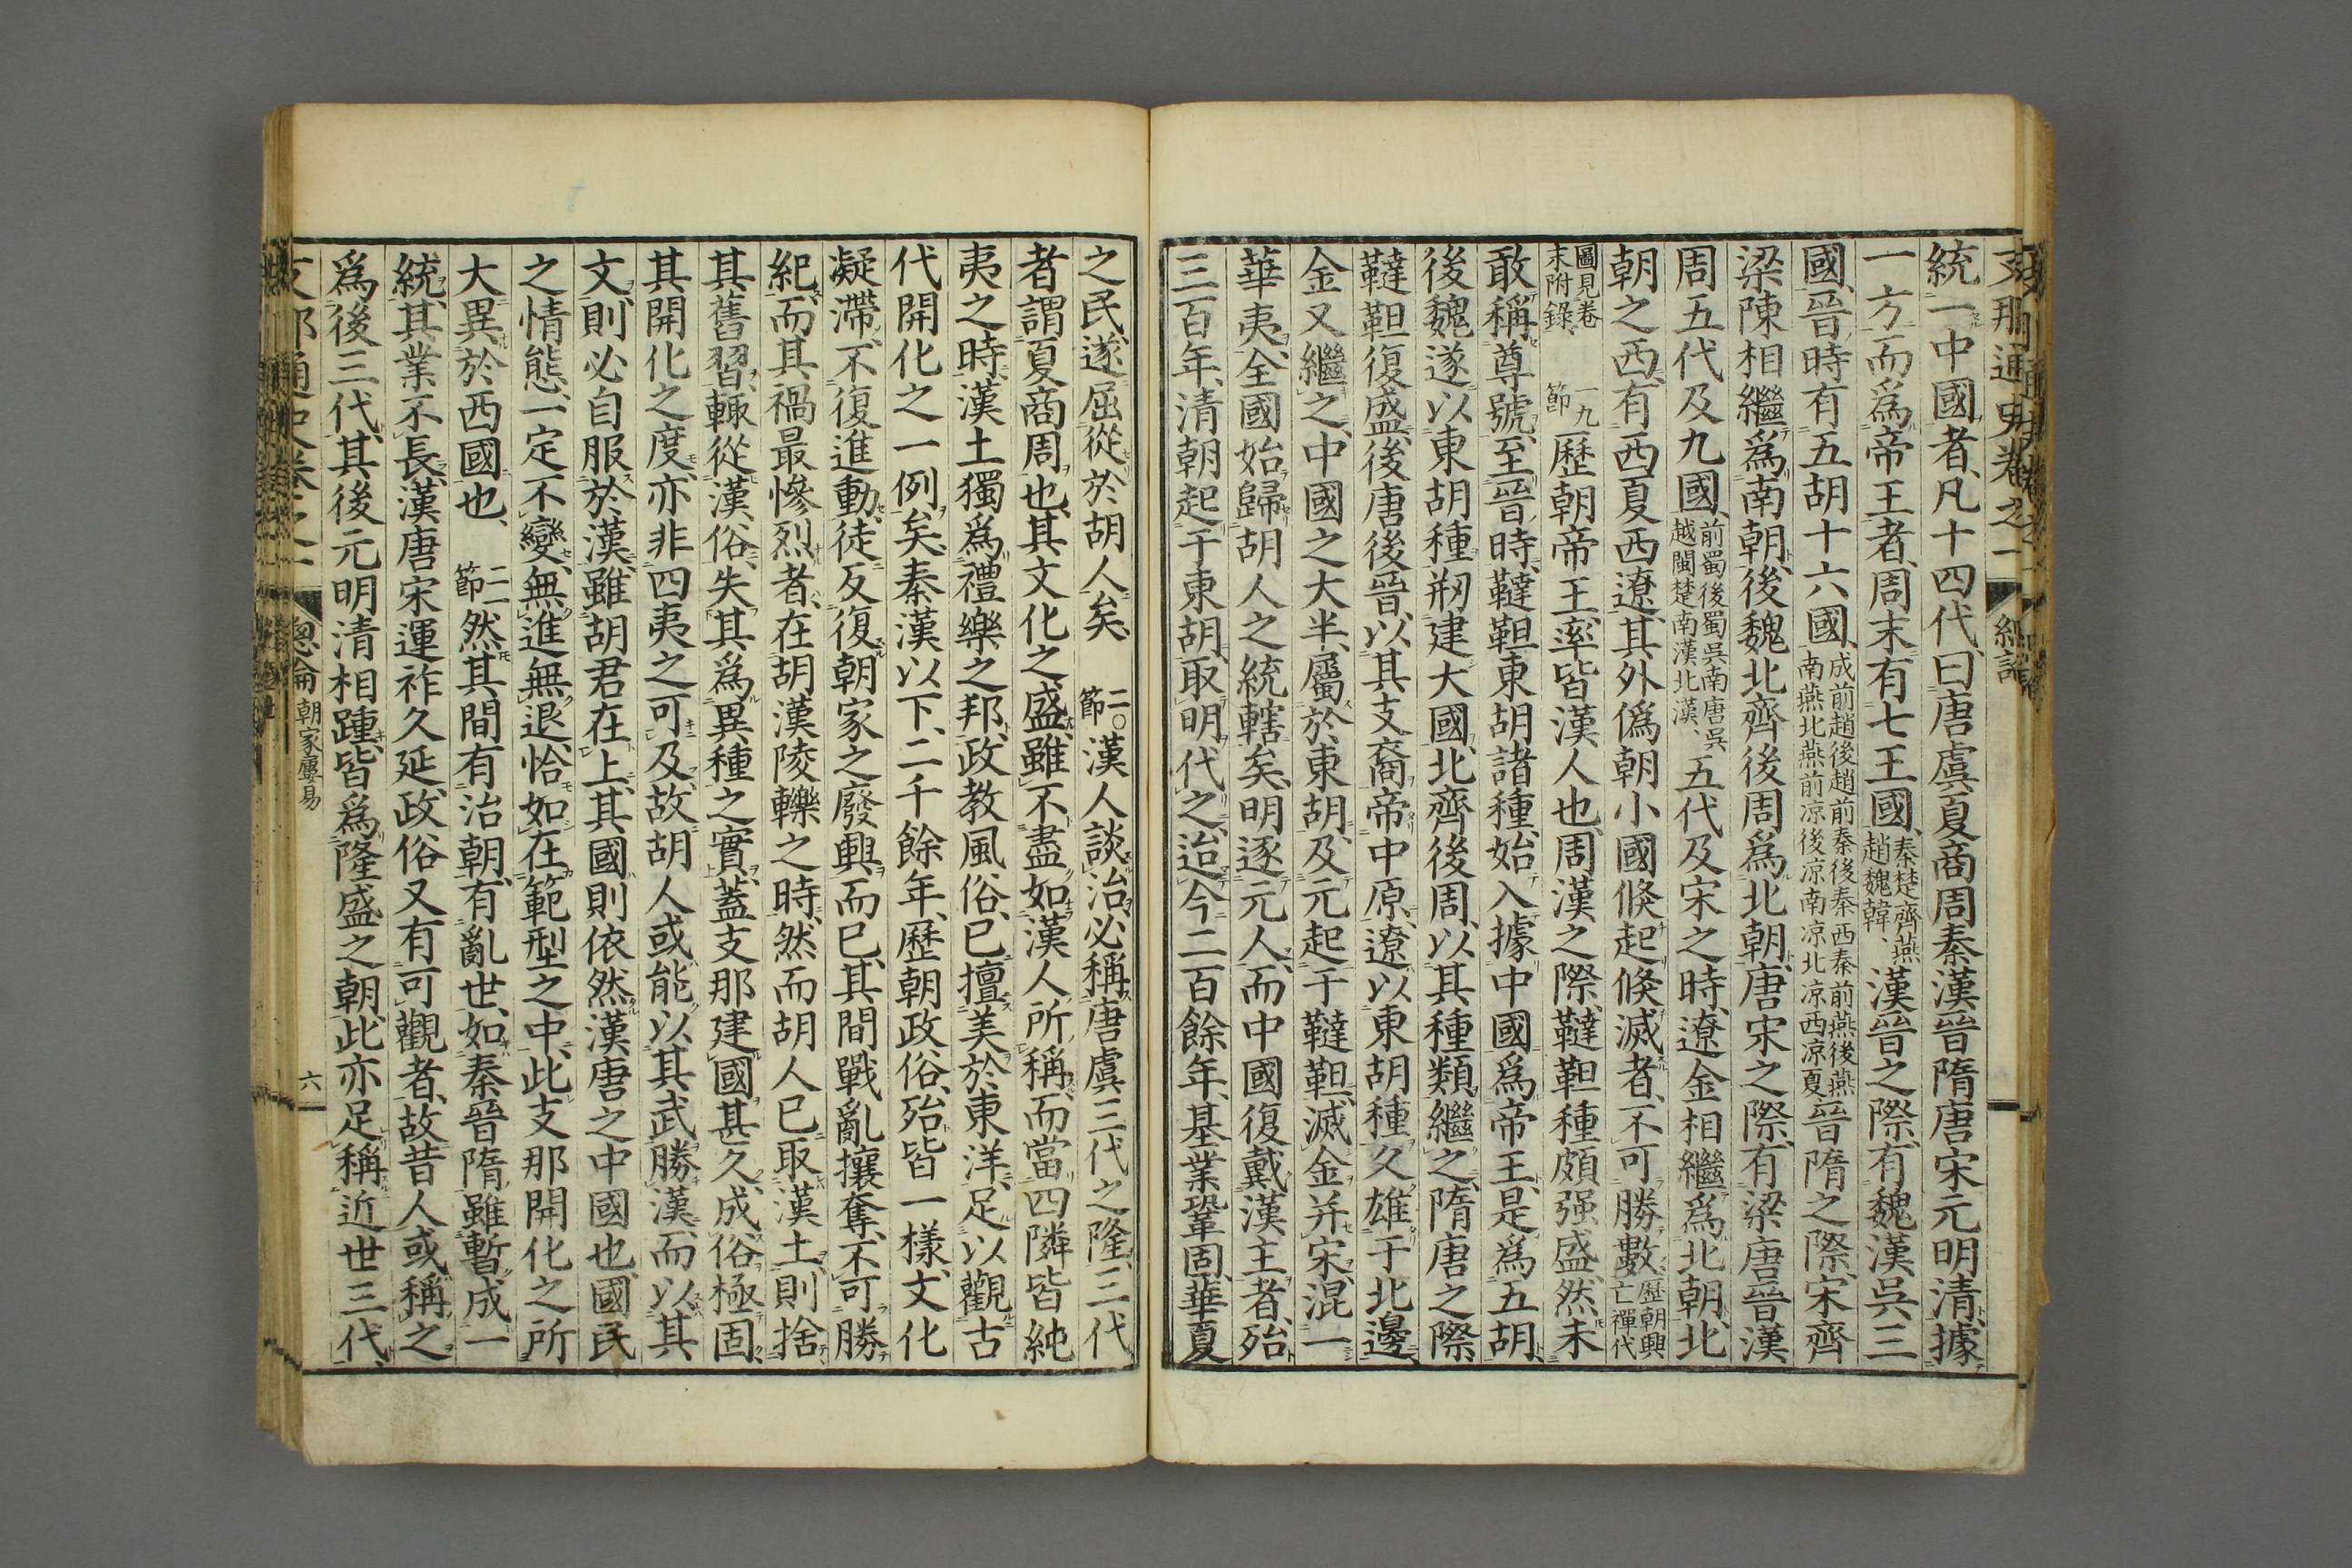 支那通史卷之一
總論
統一中國者、凡十四代、曰唐虞夏商周秦漢晉隋唐宋元明清、據
一方而爲帝王者、周末有七王國、秦楚齊燕趙魏韓、漢晉之際、有魏漢吳三
國、晉時有五胡十六國、成前趙後趙前秦後秦西秦前燕後燕南燕北燕前凉後凉南凉北凉西凉夏晉隋之際、宋齊
梁陳相繼爲南朝、後魏北齊後周爲北朝、唐宋之際、有梁唐晉漢
周五代及九國、前蜀後蜀吳南唐吳越閩楚南漢北漢、五代及宋之時、遼金相繼爲北朝、北
朝之西、有西夏西遼、其外僞朝小國倐起倐滅者、不可勝數、歷朝興亡禪代
圖見卷末附錄、一九節歷朝帝王、率皆漢人也、周漢之際、韃靼種頗强盛、然未
敢稱尊號、至晉時、韃靼東胡諸種、始入據中國爲帝王、是爲五胡、
後魏遂以東胡種剏建大國、北齊後周、以其種類繼之、隋唐之際
韃靼復盛、後唐後晉、以其支裔帝中原、遼以東胡種久雄于北邊、
金又繼之、中國之大半、屬於東胡、及元起于韃靼、滅金并宋、混一
華夷、全國始歸胡人之統轄矣、明逐元人、而中國復戴漢主者、殆
三百年、清朝起于東胡、取明代之、迨今二百餘年、基業鞏固、華夏
之民、遂屈從於胡人矣、二〇節漢人談治必稱唐虞三代之隆、三代
者謂夏商周也、其文化之盛、雖不盡如漢人所稱、而當四隣皆純
夷之時、漢土獨爲禮樂之邦、政教風俗、已擅美於東洋、足以觀古
代開化之一例矣、秦漢以下、二千餘年、歷朝政俗、殆皆一樣、文化
凝滯、不復進動、徒反復朝家之廢興而已、其間戰亂攘奪、不可勝
紀、而其禍最慘烈者、在胡漢陵轢之時、然而胡人已取漢土、則捨
其舊習、輙從漢俗、失其爲異種之實、蓋支那建國甚久、成俗極固、
其開化之度、亦非四夷之可及、故胡人或能以其武勝漢、而以其
文則必自服於漢、雖胡君在上、其國則依然漢唐之中國也、國民
之情態、一定不變、無進無退、恰如在範型之中、此支那開化之所
大異於西國也、二一節然其間有治朝、有亂世、如秦晉隋、雖暫成一
統、其業不長、漢唐宋運祚久延、政俗又有可觀者、故昔人或稱之
爲後三代、其後元明清相踵、皆爲隆盛之朝、此亦足稱近世三代、
支那通史卷之一
總論 朝家屢易
六